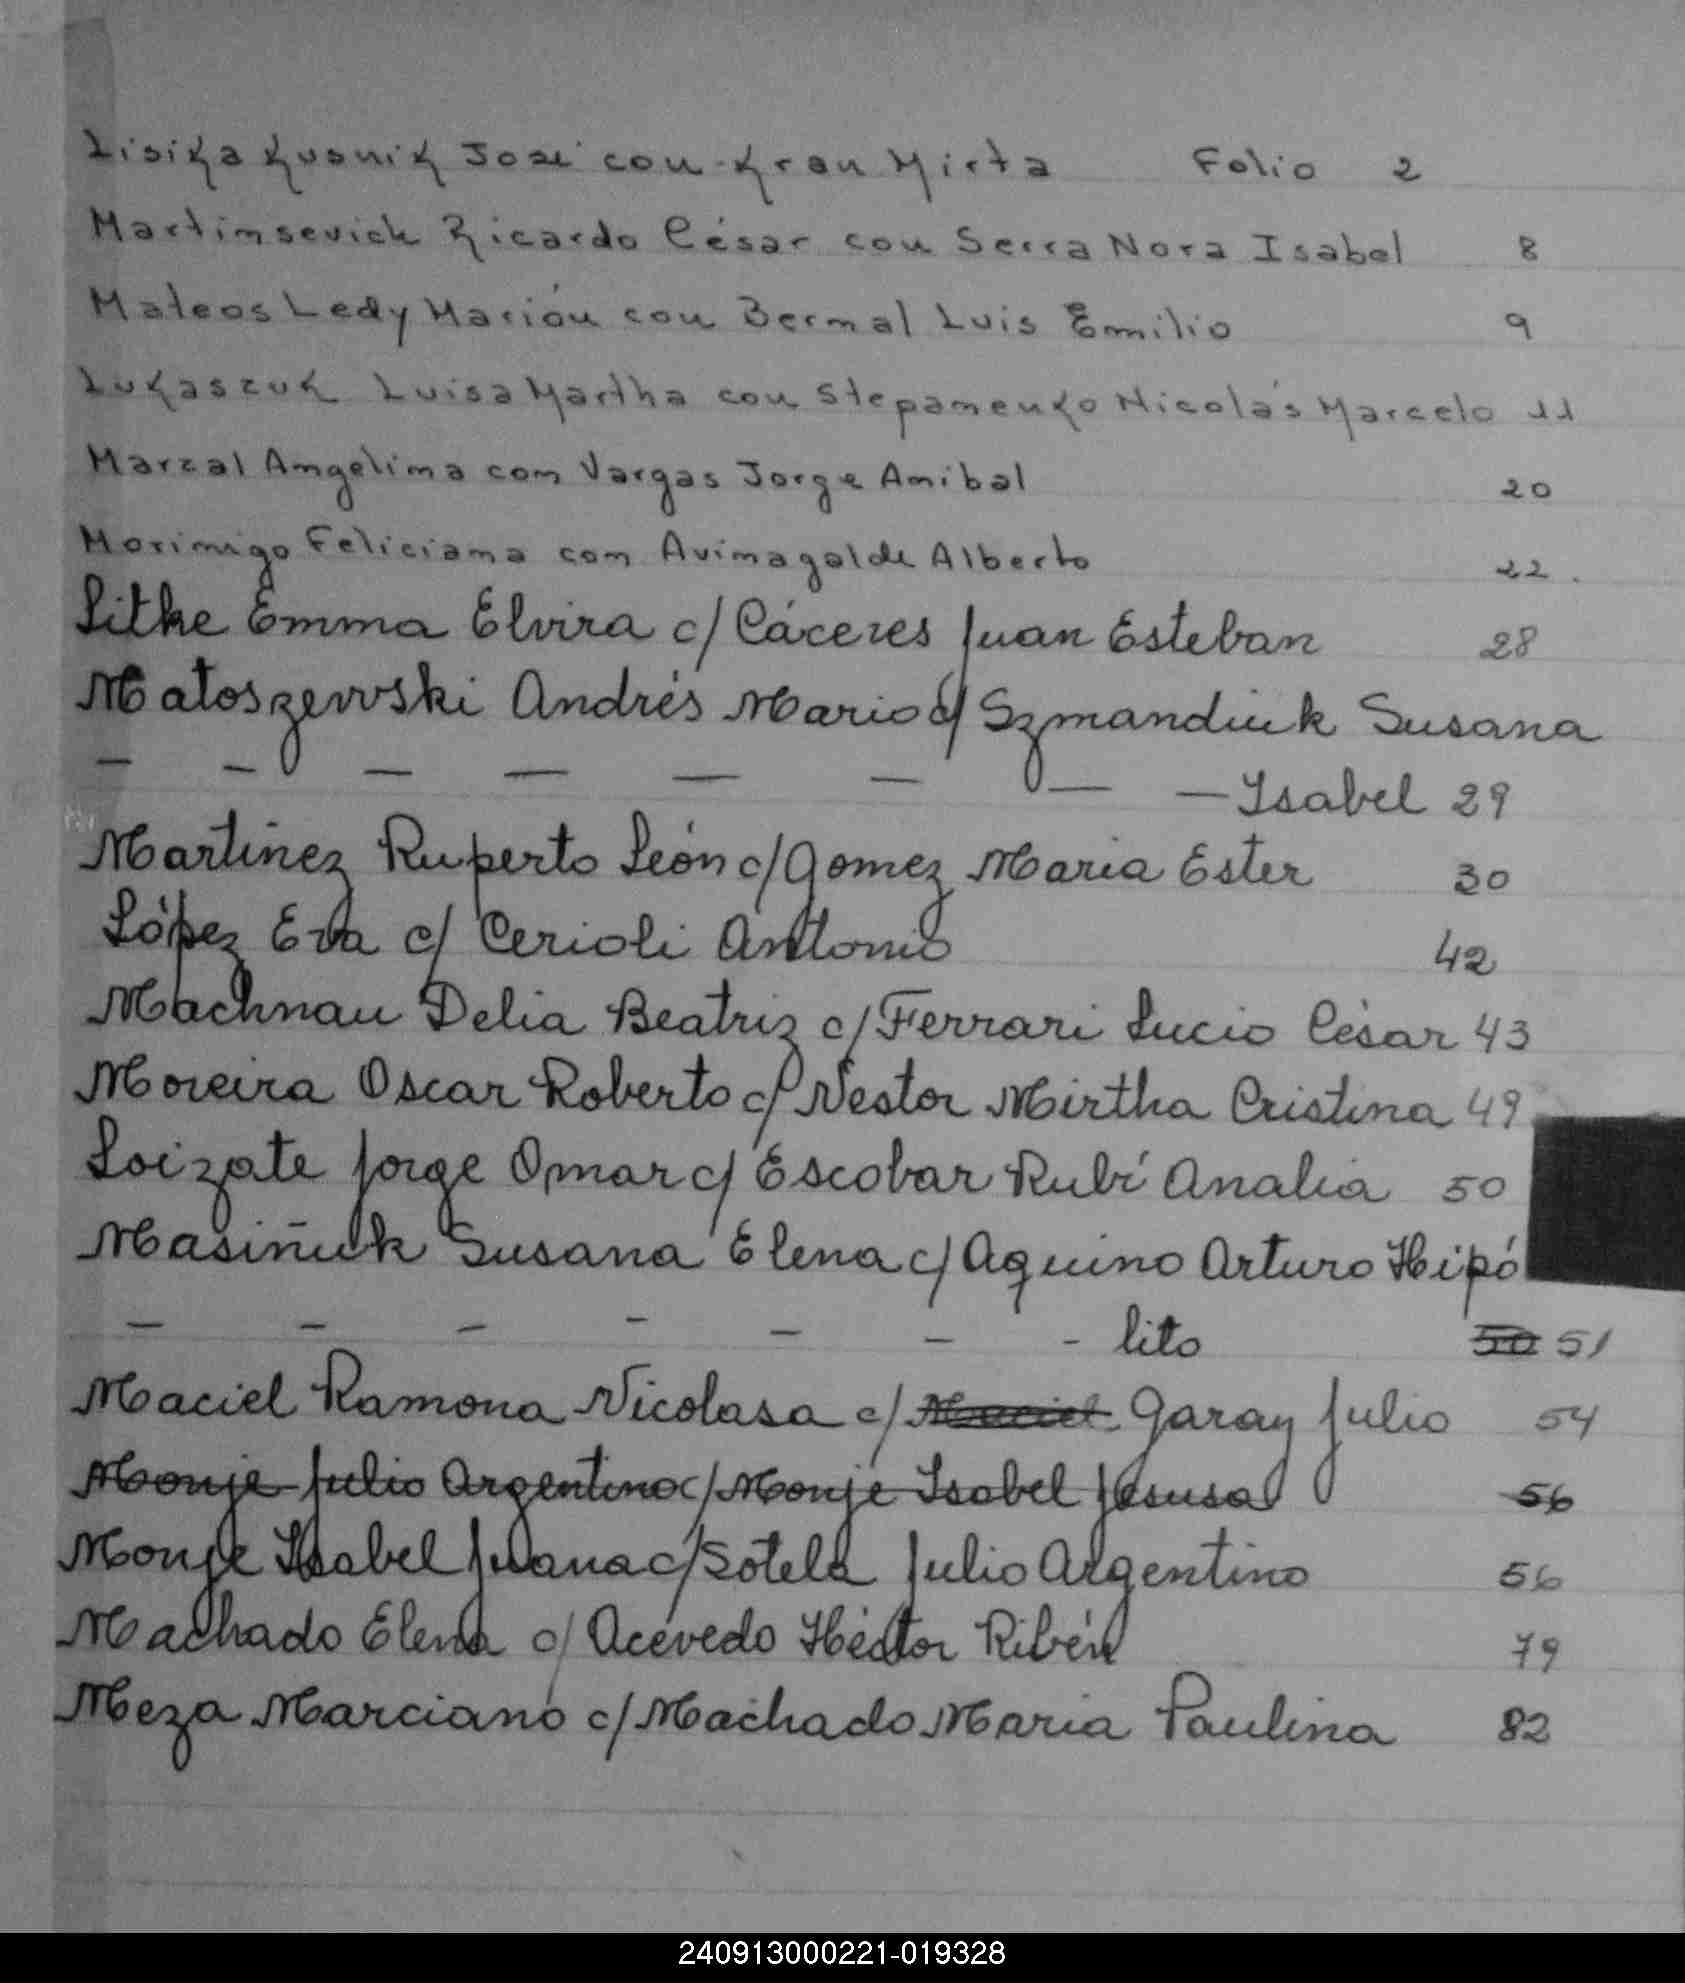 Lisika Kusnik José con Kran Mirta Folio 2
Martinsevich Ricardo César con Serra Nora Isabel 8
Mateos Ledy Marión con Bernal Luis Emilio 9
Lukaszuk Luisa Martha con Stepanenko Nicolás Marcelo 11
Marzal Angelina con Vargas Jorge Anibal 20
Morinigo Feliciana con Avinagalde Alberto 22.
Litke Emma Elvira c/ Cáceres Juan Esteban 28
Matoszewski Andrés Mario c/ Szmandiuk Susana
— — — — — — — — Isabel 29
Martinez Ruperto León c/ Gomez Maria Ester 30
López Eva c/ Cerioli Antonio 42
Machnau Delia Beatriz c/ Ferrari Lucio César 43
Moreira Oscar Roberto c/ Nestor Mirtha Cristina 49
Loizate Jorge Omar c/ Escobar Rubí Analia 50
Masiñuk Susana Elena c/ Aquino Arturo Hipó
— — — — — — - lito 50 51
Maciel Ramona Nicolasa c/ Maciel Garay Julio 54
Monje Julio Argentino c/ Monje Isabel Jesusa 56
Monje Isabel Juana c/ Sotelo Julio Argentino 56
Machado Elena c/ Acevedo Héctor Ribén 79
Meza Marciano c/ Machado Maria Paulina 82
240913000221-019328